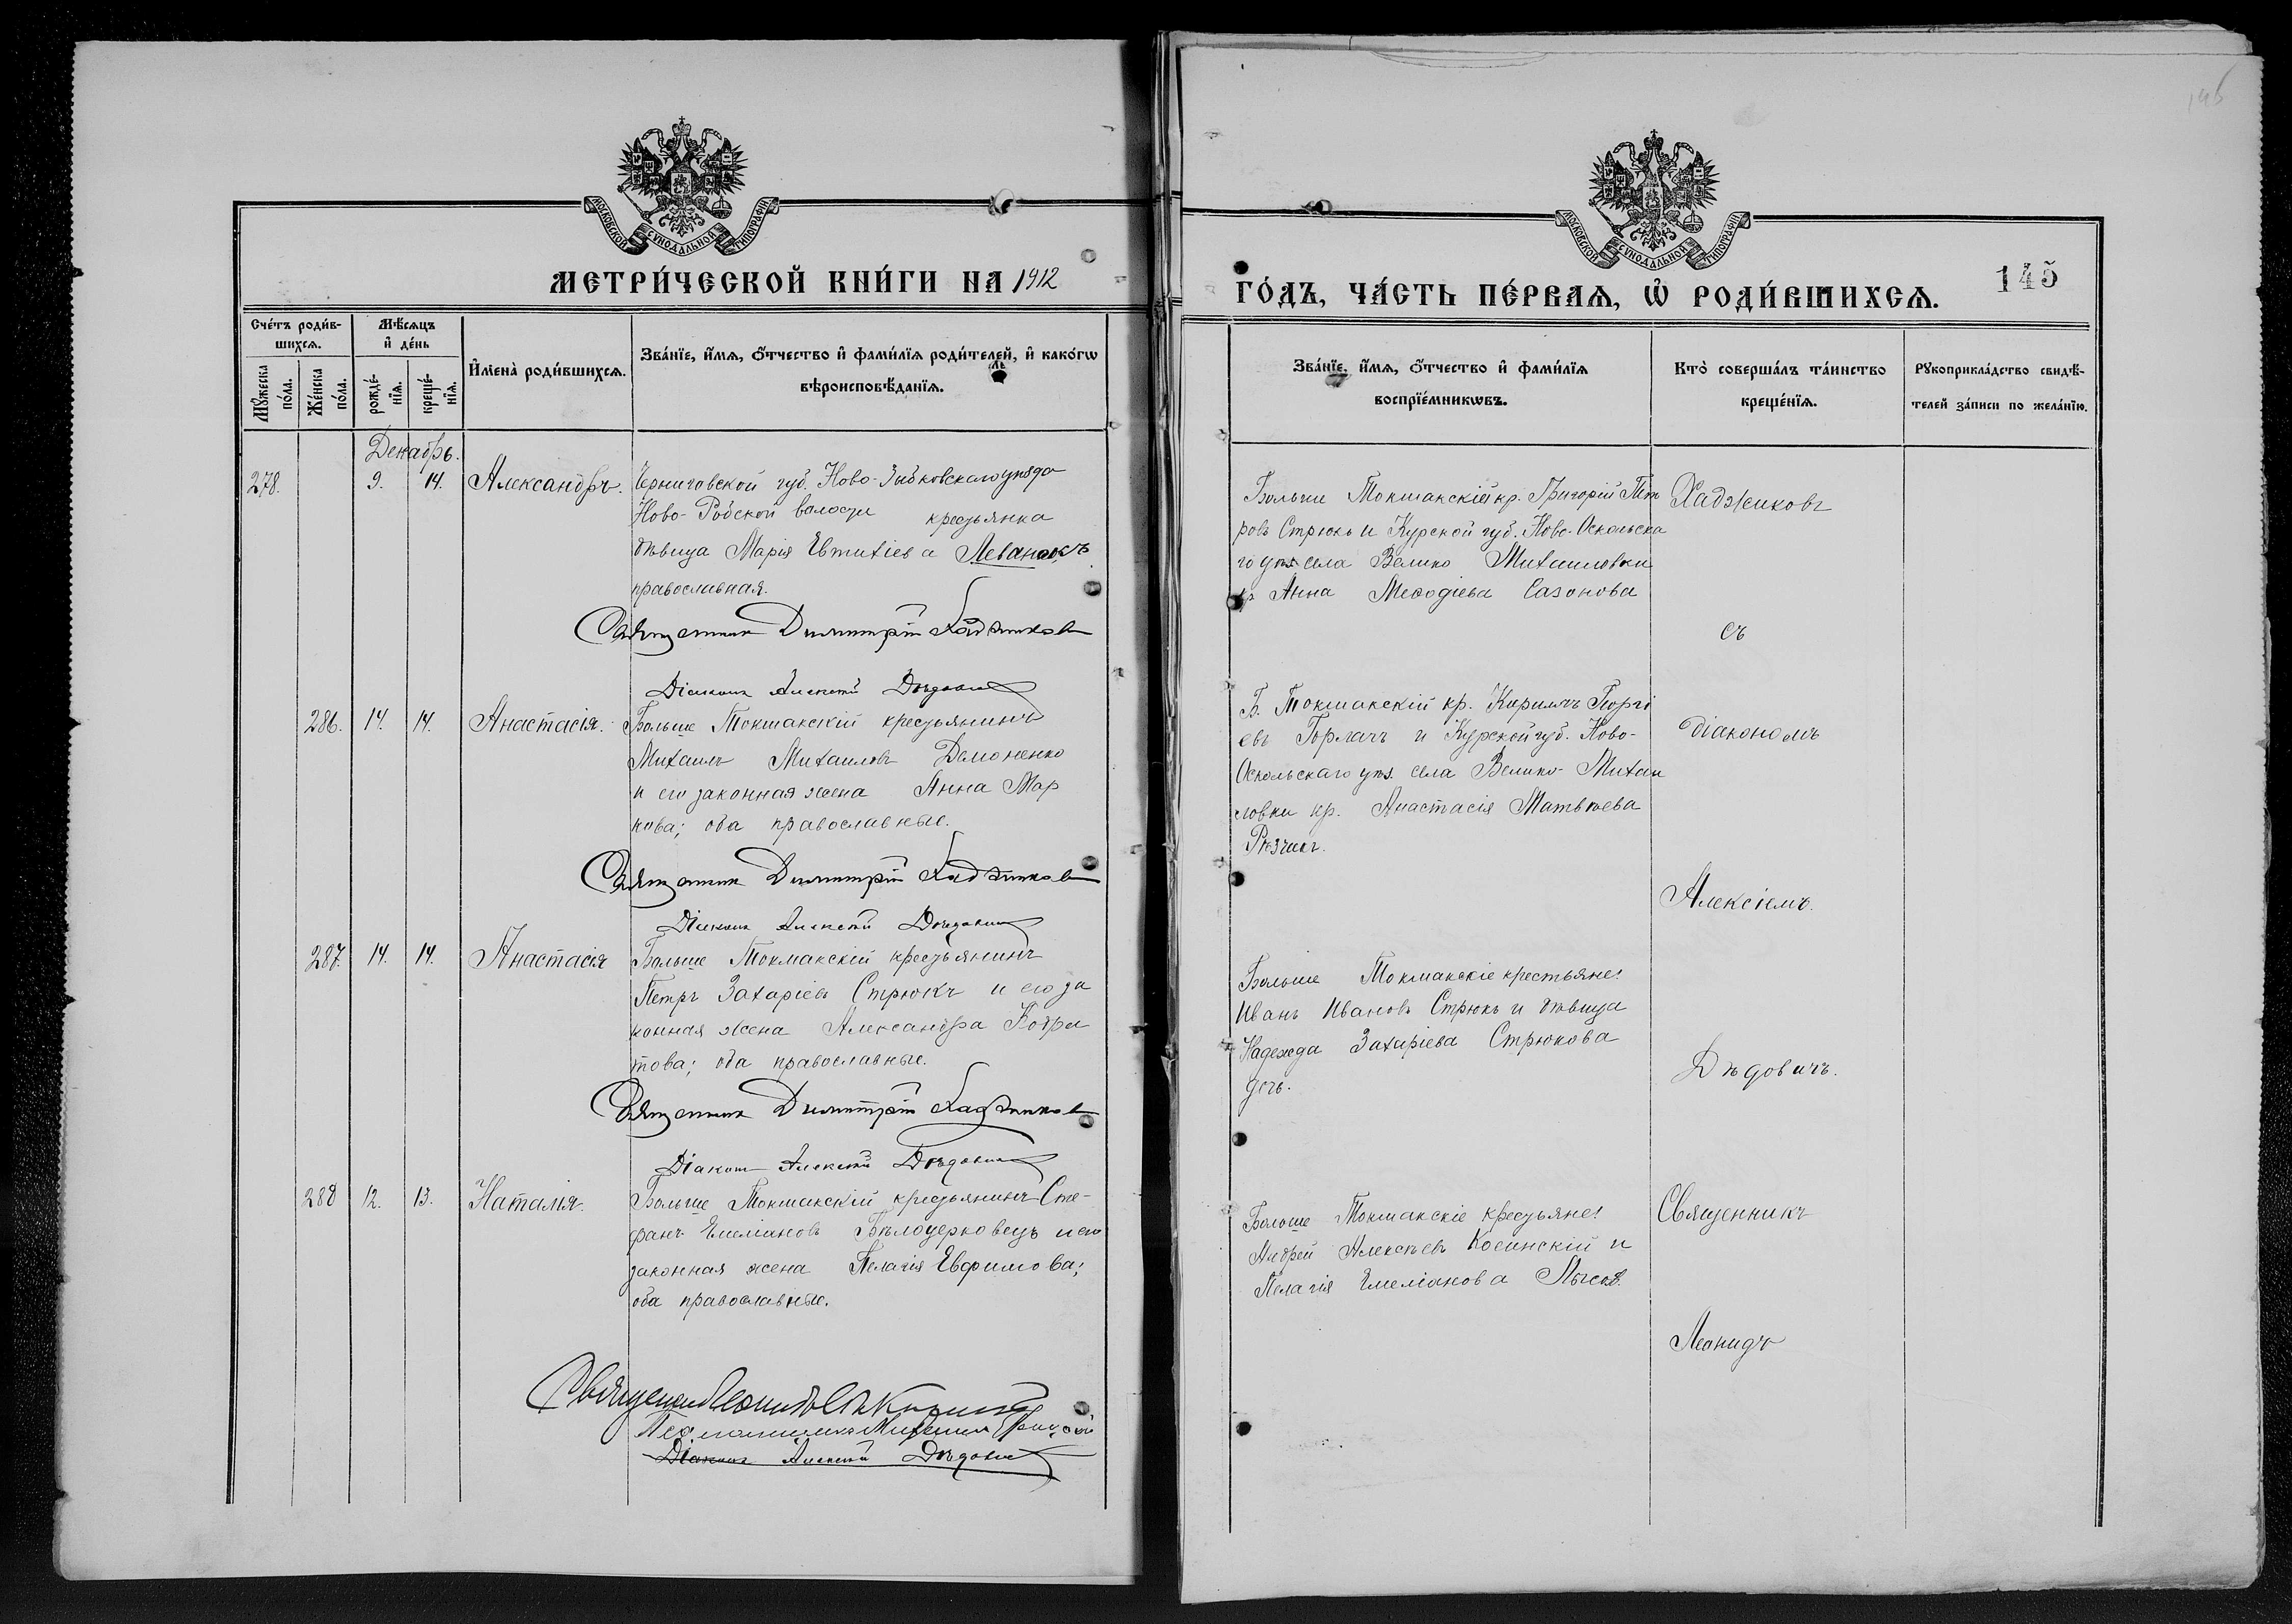 МОСКОВСКОЙ СѴНОДАЛЬНОЙ ТИПОГРАФІИ
МЕТРИ́ЧЕСКОЙ КНИ́ГИ НА 1912
Сче́тъ роди́в-
шихсѧ.
Мѣ́сѧцъ
и҆ де́нь
Мꙋ́жеска
по́ла.
Же́нска
по́ла.
рожде́-
нїѧ.
креще́-
нїѧ.
И҆мена̀ роди́вшихсѧ.
Зва́нїе, и҆́мѧ, ѻ҆́тчество и҆ фами́лїѧ роди́телей, и҆ како́гѡ
вѣроисповѣ́данїѧ.
Декабрь.
278. 9. 14. Александръ.
Черниговской губ. Ново-Зыбковскаго уѣзда
Ново-Робской волости крестьянка
дѣвица Марія Евтихіева Леванокъ,
православная.
Священник Димитрій Хаджиков
Діакон Алексій Дѣдович
286. 14. 14. Анастасія.
Больше Токмакскій крестьянинъ
Михаилъ Михаиловъ Демоненко
и его законная жена Анна Мар
кова; оба православные.
Священник Димитрій Хаджиков
Діакон Алексій Дѣдович
287. 14. 14. Анастасія
Больше Токмакскій крестьянинъ
Петръ Захаріевъ Стрюкъ и его за
конная жена Александра Кодра
това; оба православные.
Священник Димитрій Хаджиков
Діакон Алексій Дѣдович
288 12. 13. Наталія.
Больше Токмакскій крестьянинъ Сте-
фанъ Емеліановъ Бѣлоцерковецъ и его
законная жена Пелагія Евфимова;
оба православные.
Священник Леонидъ
Псаломщикъ Михаилъ
Діакон Алексій Дѣдович
145
МОСКОВСКОЙ СѴНОДАЛЬНОЙ ТИПОГРАФІИ
ГО́ДЪ, ЧА́СТЬ ПЕ́РВАѦ, Ѽ РОДИ́ВШИХСѦ.
145
Зва́нїе, и҆́мѧ, ѻ҆́тчество и҆ фами́лїѧ
воспрїе́мникѡвъ.
Кто̀ соверша́лъ та́инство
креще́нїѧ.
Рꙋкоприкла́дство свидѣ́-
телей за́писи по жела́нїю.
Больше Токмакскій кр. Григорій Пет
ровъ Стрюкъ и Курской губ. Ново-Оскольска
го уѣз. села Велико Михаиловки
кр. Анна Меѳодіева Сазонова
Хаджиковъ
съ
Б. Токмакскій кр. Кириллъ Георгі
евъ Горлачъ и Курской губ. Ново-
Оскольскаго уѣз. села Велико-Михаи
ловки кр. Анастасія Матвѣева
Рѣзчикъ.
діакономъ
Алексіемъ.
Больше Токмакскіе крестьяне:
Иванъ Ивановъ Стрюкъ и дѣвица
Надежда Захаріева Стрюкова
дочь.
Дѣдовичъ.
Больше Токмакскіе крестьяне:
Андрей Алексѣевъ Косинскій и
Пелагія Емеліанова
Священникъ
Леонидъ